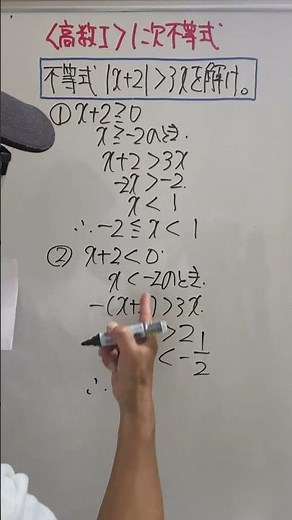 <高数Ⅰ>1次不等式
不等式 |x+2|>3xを解け。
① x+2≧0
x≧-2のとき.
x+2>3x
-2x>-2.
x<1
∴-2≦x<1
② x+2<0.
x<-2のとき.
-(x+2)>3x.
>2
<-1/2
∴